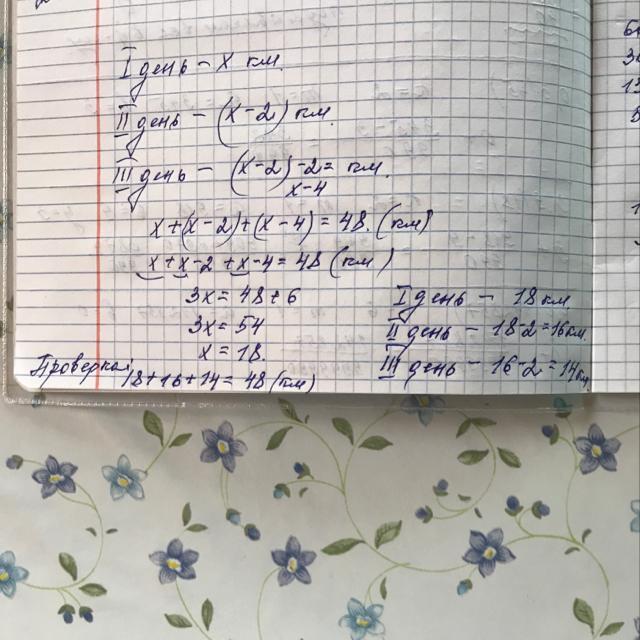 I день – x км.
II день – (x-2) км.
III день – (x-2)-2= км.
x-4
x+(x-2)+(x-4)=48 (км)
x+x-2+x-4=48 (км)
3x=48+6
3x=54
x=18.
I день – 18 км
II день – 18-2=16км.
III день – 16-2=14км.
Проверка:
18+16+14=48 (км)